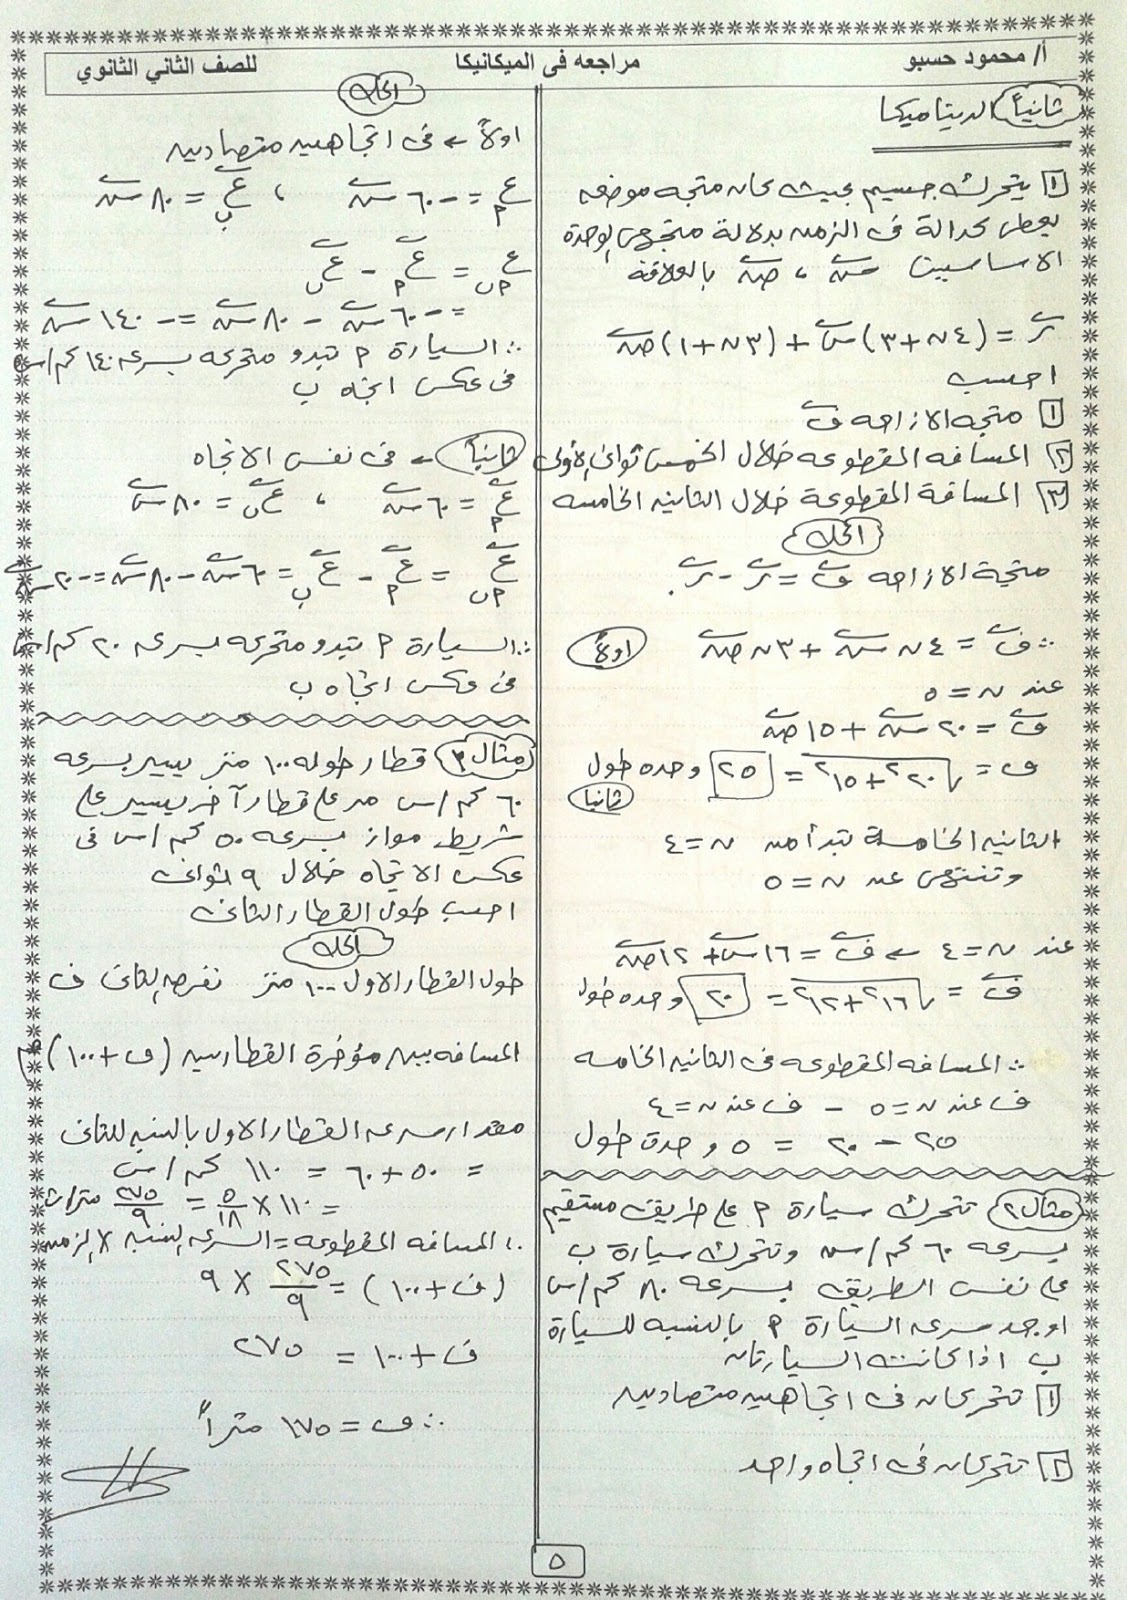 أ/ محمود حسبو
مراجعه فى الميكانيكا
للصف الثاني الثانوي
ثانياً الديناميكا
١ يتحرك جسيم بحيث كان متجه موضعه
يعطى كدالة فى الزمن بدلالة متجهى الوحدة
الاساسيين س ، ص بالعلاقه
ر = (٤ن+٣) س + (٣ن+١) ص
احسب
١ متجه الازاحه ف
٢ المسافه المقطوعه خلال الخمس ثوانى الأولى
٣ المسافة المقطوعة خلال الثانيه الخامسه
الحل
متجة الازاحه ف = ر - ر.
∴ ف = ٤ن س + ٣ن ص
اولاً
عند ن = ٥
ف = ٢٠ س + ١٥ ص
ف = √٢٠² + ١٥² = ٢٥ وحده طول
ثانيا
الثانيه الخامسة تبدأ من ن = ٤
وتنتهى عند ن = ٥
عند ن = ٤ ← ف = ١٦ س + ١٢ ص
ف = √١٦² + ١٢² = ٢٠ وحده طول
∴ المسافه المقطوعه فى الثانيه الخامسه
ف عند ن = ٥ - ف عند ن = ٤
٢٥ - ٢٠ = ٥ وحدة طول
مثال ٢ تتحرك سيارة P على طريق مستقيم
بسرعه ٦٠ كم/س وتتحرك سيارة ب
على نفس الطريق بسرعه ٨٠ كم/س
اوجد سرعه السيارة P بالنسبه للسيارة
ب اذا كانت السيارتان
١ تتحركان فى اتجاهين متضادين
٢ تتحركان فى اتجاه واحد
الحل
اولاً ← فى اتجاهين متضادين
ع P = -٦٠ س ، ع ب = ٨٠ س
ع P ب = ع P - ع ب
= -٦٠ س - ٨٠ س = -١٤٠ س
∴ السيارة P تبدو متحركه بسرعه ١٤٠ كم/س
فى عكس اتجاه ب
ثانياً ← فى نفس الاتجاه
ع P = ٦٠ س ، ع ب = ٨٠ س
ع P ب = ع P - ع ب = ٦٠ س - ٨٠ س = -٢٠ س
∴ السيارة P تبدو متحركه بسرعه ٢٠ كم/س
فى عكس اتجاه ب
مثال ٣ قطار طوله ١٠٠ متر يسير بسرعه
٦٠ كم/س مر على قطار آخر يسير على
شريط مواز بسرعه ٥٠ كم/س فى
عكس الاتجاه خلال ٩ ثوانى
احسب طول القطار الثانى
الحل
طول القطار الاول ١٠٠ متر نفرض الثانى ف
المسافه بين مؤخرة القطارين (ف + ١٠٠) م
مقدار سرعه القطار الاول بالنسبه للثانى
= ٥٠ + ٦٠ = ١١٠ كم/س
= ١١٠ × ٥/١٨ = ٢٧٥/٩ متر/ث
∴ المسافه المقطوعه = السرعه النسبيه × الزمن
(ف + ١٠٠) = ٢٧٥/٩ × ٩
ف + ١٠٠ = ٢٧٥
∴ ف = ١٧٥ متراً
٥